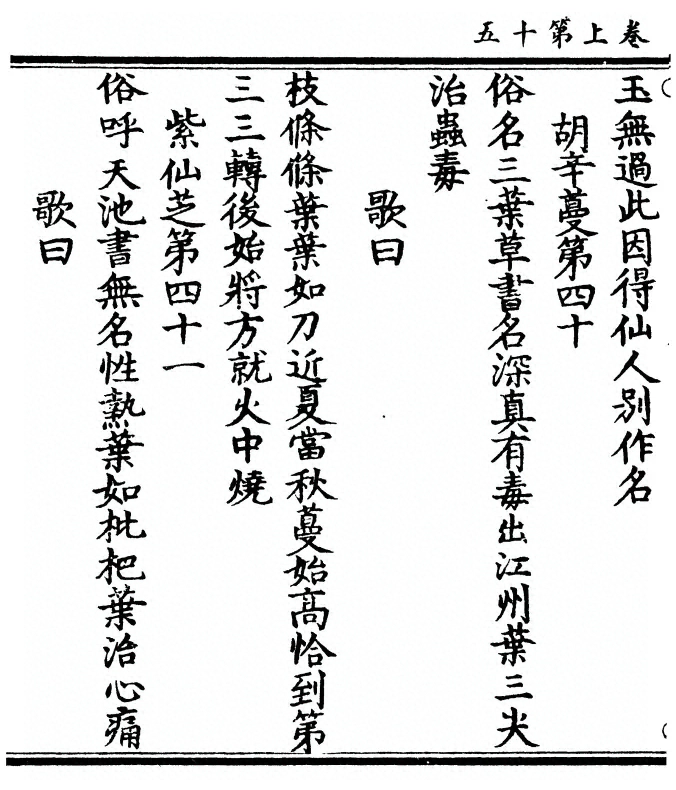 卷上第十五
玉無過此因得仙人別作名
胡辛蔓第四十
俗名三葉草書名深真有毒出江州葉三尖
治蟲毒
歌曰
枝條條葉葉如刀近夏當秋蔓始高恰到第
三三轉後始將方就火中燒
紫仙芝第四十一
俗呼天池書無名性熱葉如枇杷葉治心痛
歌曰